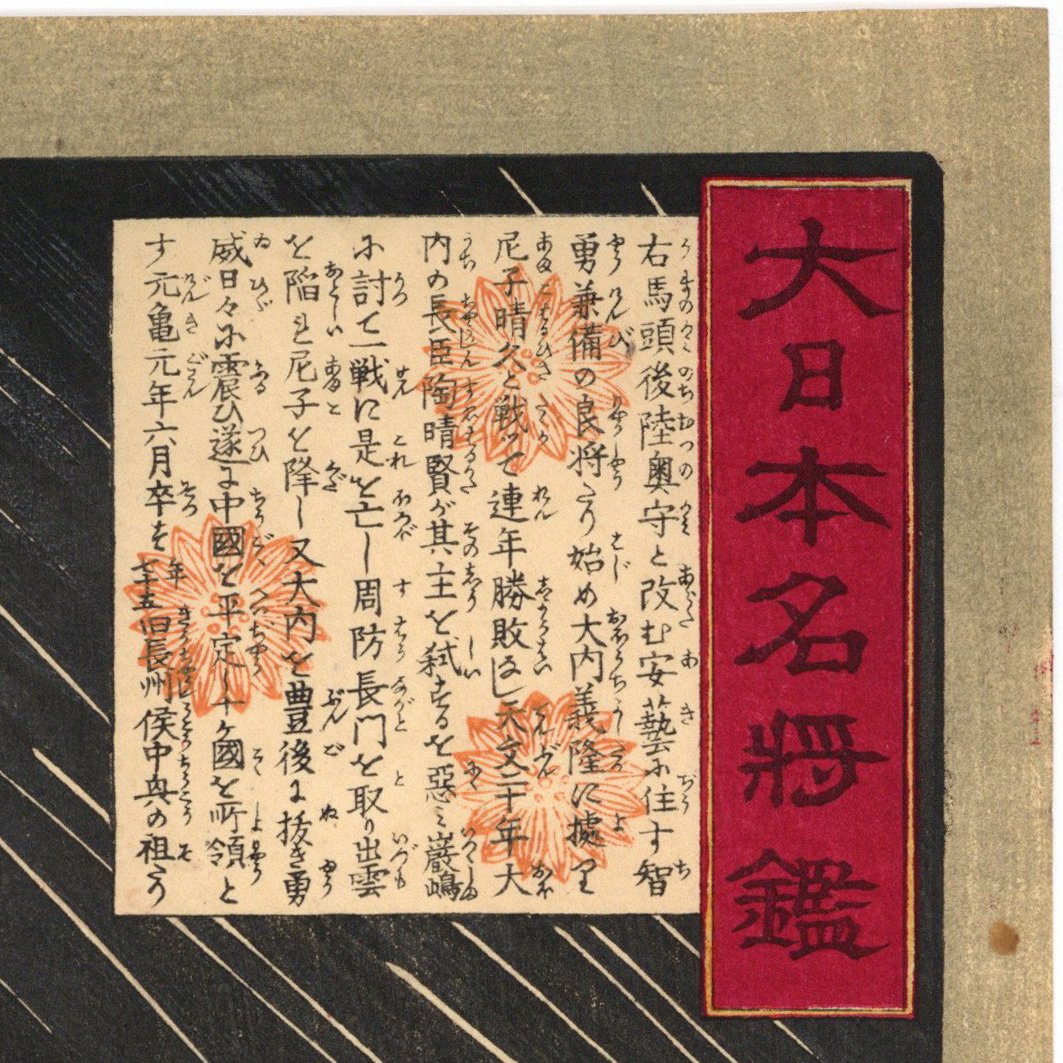 大日本名将鑑
右馬頭後陸奥守と改む安藝に住す智
勇兼備の良将たり始め大内義隆に據り
尼子晴久と戦つて連年勝敗なし天文二十年大
内の長臣陶晴賢が其主を弑するを惡み嚴嶋
に討て一戦に是を亡し周防長門を取り出雲
を陥れ尼子を降し又大内を豊後に抜き勇
威日々に震ひ遂に中國を平定し十ヶ國を所領と
す元亀元年六月卒を年七十五旧長州侯中興の祖たり